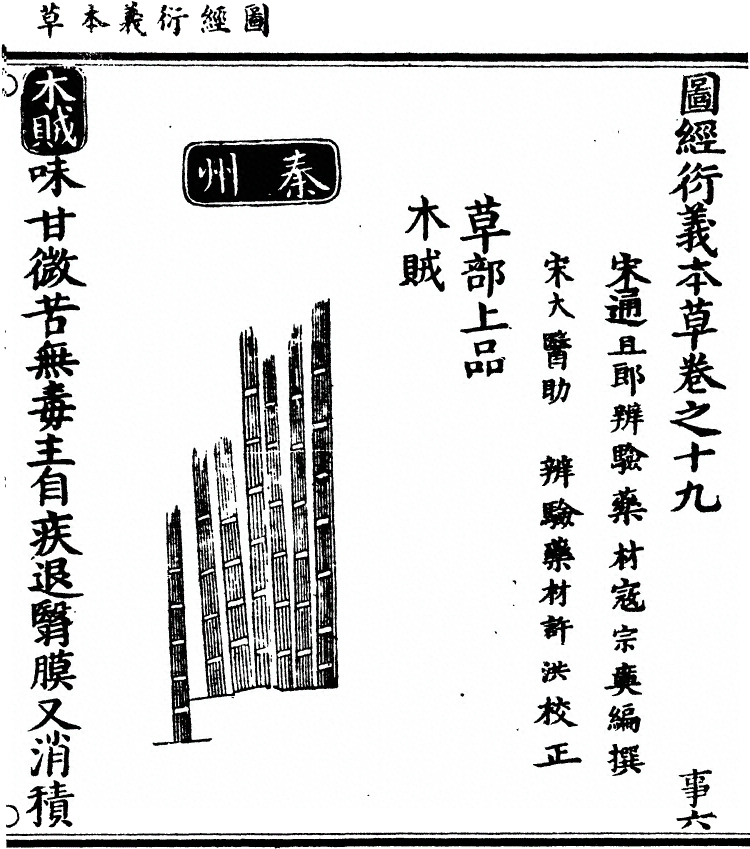 圖經衍義本草
圖經衍義本草卷之十九
事六
宋通直郎辨驗藥材寇宗奭編撰
宋太醫助 辨驗藥材許洪校正
草部上品
木賊
秦州
木賊味甘微苦無毒主目疾退翳膜又消積